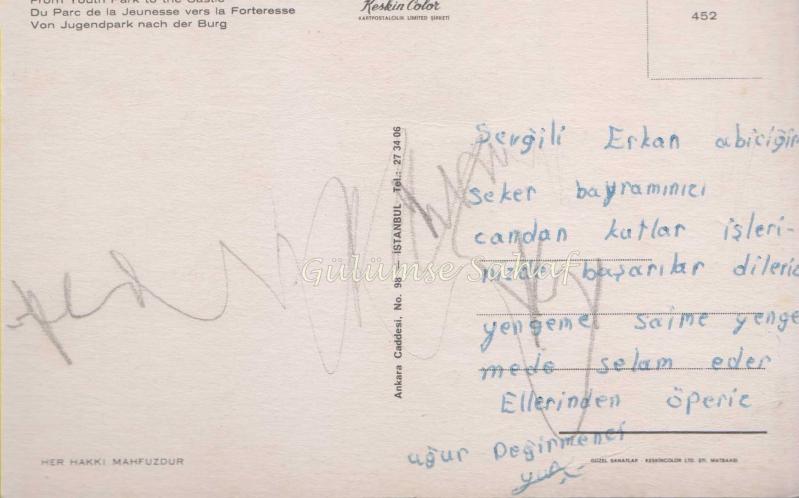 From Youth Park to the Castle
Du Parc de la Jeunesse vers la Forteresse
Von Jugendpark nach der Burg
Keskin Color
KARTPOSTALCILIK LIMITED ŞİRKETİ
452
Sevgili Erkan abiciğim
Şeker bayramınızı
candan kutlar işleri-
nizde başarılar dileriz
yengeme Saime yenge
mede selam eder
Ellerinden öperiz
uğur Değirmenci
Ankara Caddesi, No. 98 — İSTANBUL Tel.: 27 34 06
Gülümse Sahaf
HER HAKKI MAHFUZDUR
GÜZEL SANATLAR - KESKİNCOLOR LTD. ŞTİ. MATBAASI